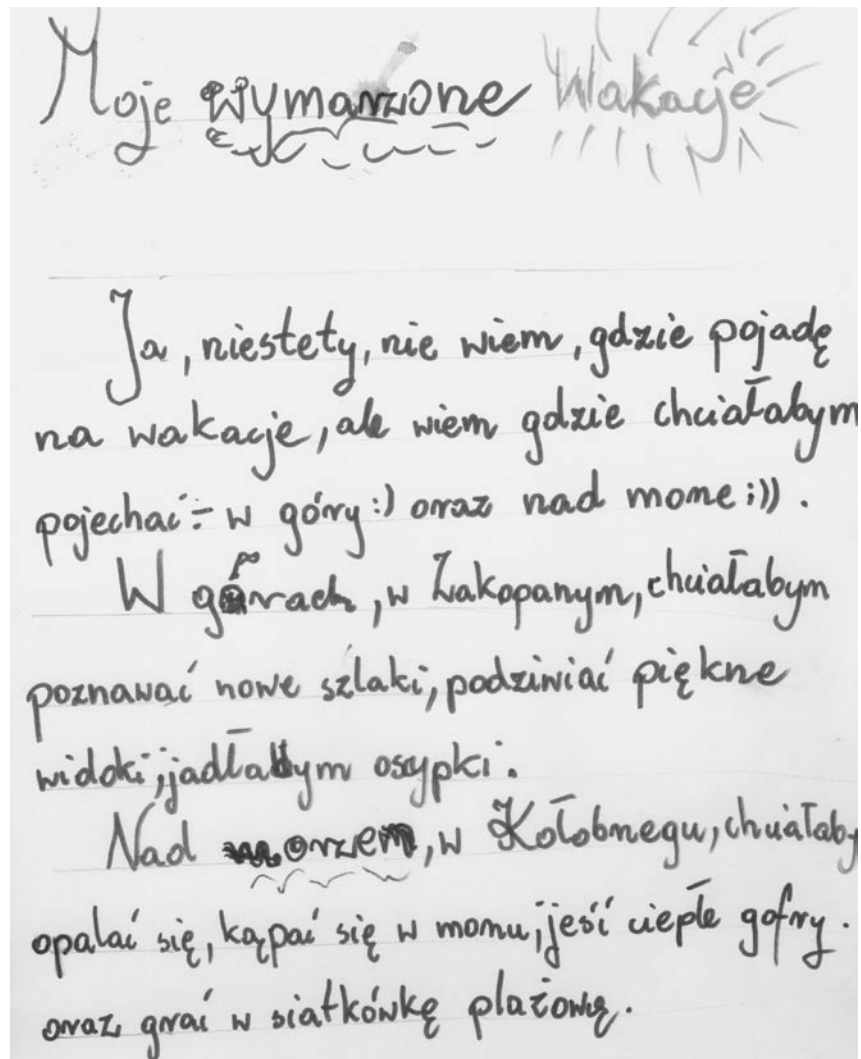 Moje wymarzone Wakacje
Ja, niestety, nie wiem, gdzie pojadę
na wakacje, ale wiem gdzie chciałabym
pojechać - w góry :) oraz nad morze ;)).
W górach, w Zakopanym, chciałabym
poznawać nowe szlaki, podziwiać piękne
widoki, jadłabym oscypki.
Nad morzem, w Kołobrzegu, chciałaby
opalać się, kąpać się w morzu, jeść ciepłe gofry.
oraz grać w siatkówkę plażową.